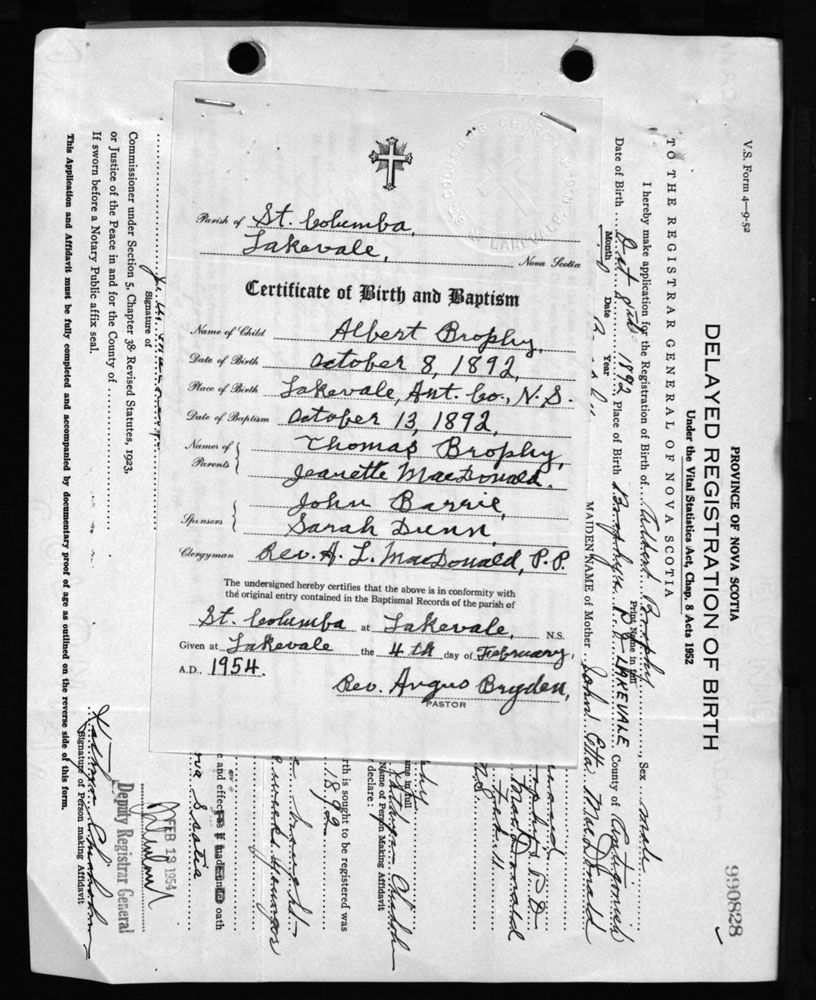 Parish of St. Columba,
Lakevale, Nova Scotia
Certificate of Birth and Baptism
Name of Child Albert Brophy,
Date of Birth October 8, 1892,
Place of Birth Lakevale, Ant. Co., N.S.
Date of Baptism October 13, 1892,
Names of Parents } Thomas Brophy,
Jeanette MacDonald.
Sponsors } John Barrie,
Sarah Dunn,
Clergyman Rev. A. L. MacDonald, P.P.
The undersigned hereby certifies that the above is in conformity with
the original entry contained in the Baptismal Records of the parish of
St. Columba at Lakevale, N.S.
Given at Lakevale the 4th day of February,
A.D. 1954.
Rev. Angus Bryden,
PASTOR
V.S. Form 4—9-52
990828
PROVINCE OF NOVA SCOTIA
DELAYED REGISTRATION OF BIRTH
Under the Vital Statistics Act, Chap. 8 Acts 1952
TO THE REGISTRAR GENERAL OF NOVA SCOTIA
I hereby make application for the Registration of Birth of Albert Brophy, Sex male
Print Name in full
Date of Birth Oct 8th 1892 Place of Birth Brophys P.O. LAKEVALE County of Antigonish
Month Date Year
MAIDEN NAME of Mother John Etta MacDonald
MacDonald
N.S.
me in full
Name of Person Making Affidavit
declare:
rth is sought to be registered was
1892
weeks younger
e and effect as if made under oath
ova Scotia
Signature of
Commissioner under Section 5, Chapter 38, Revised Statutes, 1923,
or Justice of the Peace in and for the County of
If sworn before a Notary Public affix seal.
Signature of Person making Affidavit
FEB 13 1954
Deputy Registrar General
This Application and Affidavit must be fully completed and accompanied by documentary proof of age as outlined on the reverse side of this form.